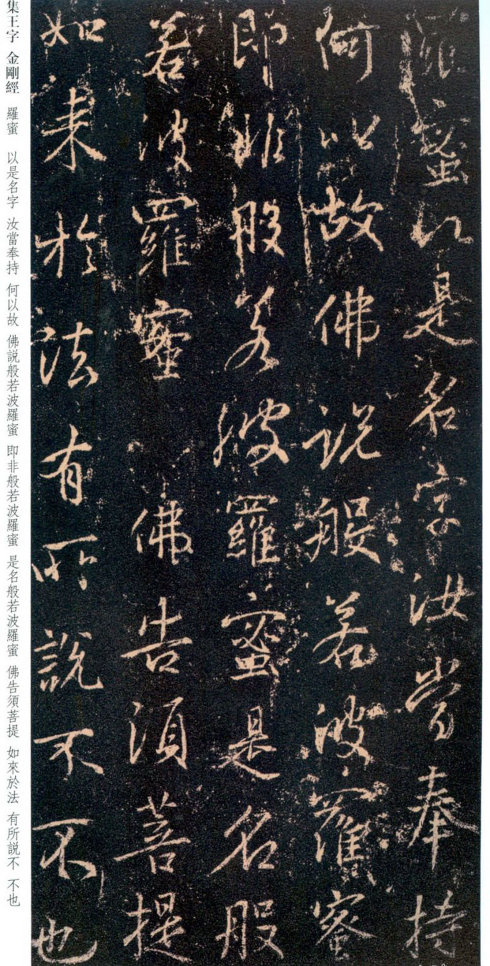 羅蜜以是名字汝當奉持
何以故佛說般若波羅蜜
即非般若波羅蜜是名般
若波羅蜜佛告須菩提
如來於法有所說不不也
集王字 金剛經 羅蜜 以是名字 汝當奉持 何以故 佛說般若波羅蜜 即非般若波羅蜜 是名般若波羅蜜 佛告須菩提 如來於法 有所說不 不也